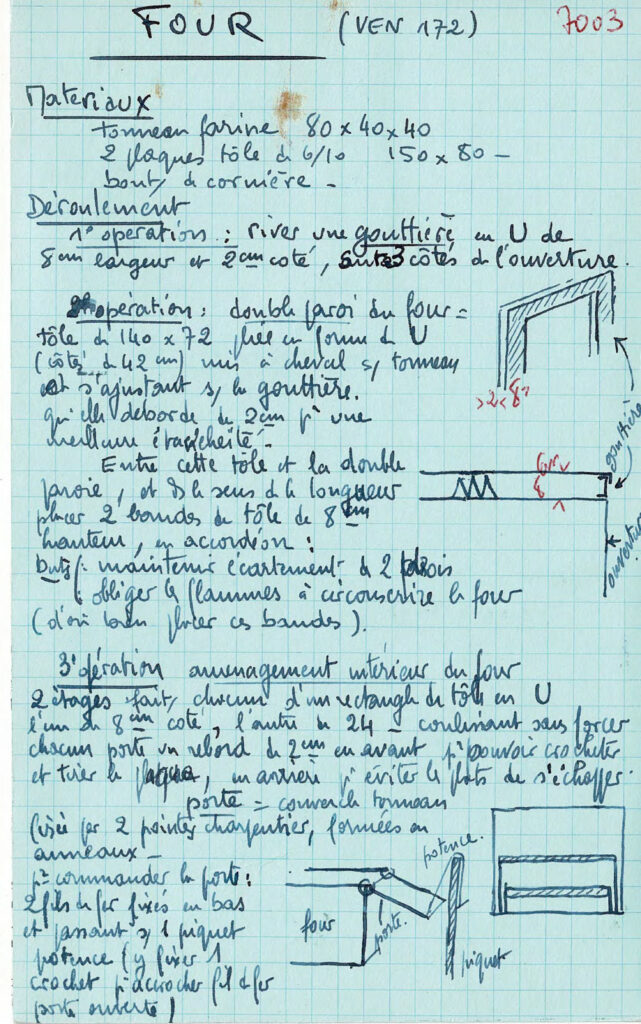 FOUR (VEN 172) 7003
Materiaux
tonneau farine 80 x 40 x 40
2 plaques tôle de 6/10 150 x 80 -
bouts de cornière -
Déroulement
1° opération : river une gouttière en U de
8 cm largeur et 2 cm coté, sur 3 côtés de l'ouverture.
opération : double paroi du four =
tôle de 140 x 72 pliée en forme de U
(côtés de 42 cm) mis à cheval s/ tonneau
et s'ajustant s/ la gouttière.
qu'elle déborde de 2 cm pr une
meilleure étanchéité -
>2< 8
gouttière
Entre cette tôle et la double
paroie, et ds le sens de la longueur
placer 2 bandes de tôle de 8 cm
hauteur, en accordéon :
8
ouverture
buts : maintenir écartement de 2 parois
: obliger les flammes à circonscrire le four
(d'où bien placer ces bandes).
3° opération aménagement intérieur du four
2 étages faits chacun d'un rectangle de tôle en U
l'un de 8 cm coté, l'autre de 24 - coulissant sans forcer
chacun porte un rebord de 2 cm en avant pr pouvoir crocheter
et tirer la plaque, en arrière pr éviter les plats de s'échapper.
porte = couvercle tonneau
(vissée par 2 pointes charpentier, formées en
anneaux -
pr commander la porte :
2 fils de fer fixés en bas
et passant s/ 1 piquet
potence (y fixer 1
crochet pr accrocher fil de fer
porte ouverte)
potence.
four
porte.
piquet